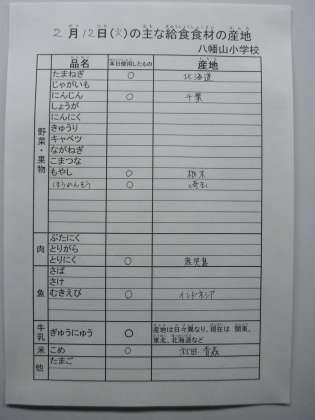 2月12日(火)の主な給食食材の産地
八幡山小学校
品名 本日使用したもの 産地
野菜・果物
たまねぎ ○ 北海道
じゃがいも
にんじん ○ 千葉
しょうが
にんにく
きゅうり
キャベツ
ながねぎ
こまつな
もやし ○ 栃木
(ほうれんそう) ○ 埼玉
肉
ぶたにく
とりがら
とりにく ○ 鹿児島
魚
さば
さけ
むきえび ○ インドネシア
牛乳 ぎゅうにゅう ○ 産地は日々異なり、現在は 関東、
東北、北海道など
米 こめ ○ 秋田 青森
他 たまご